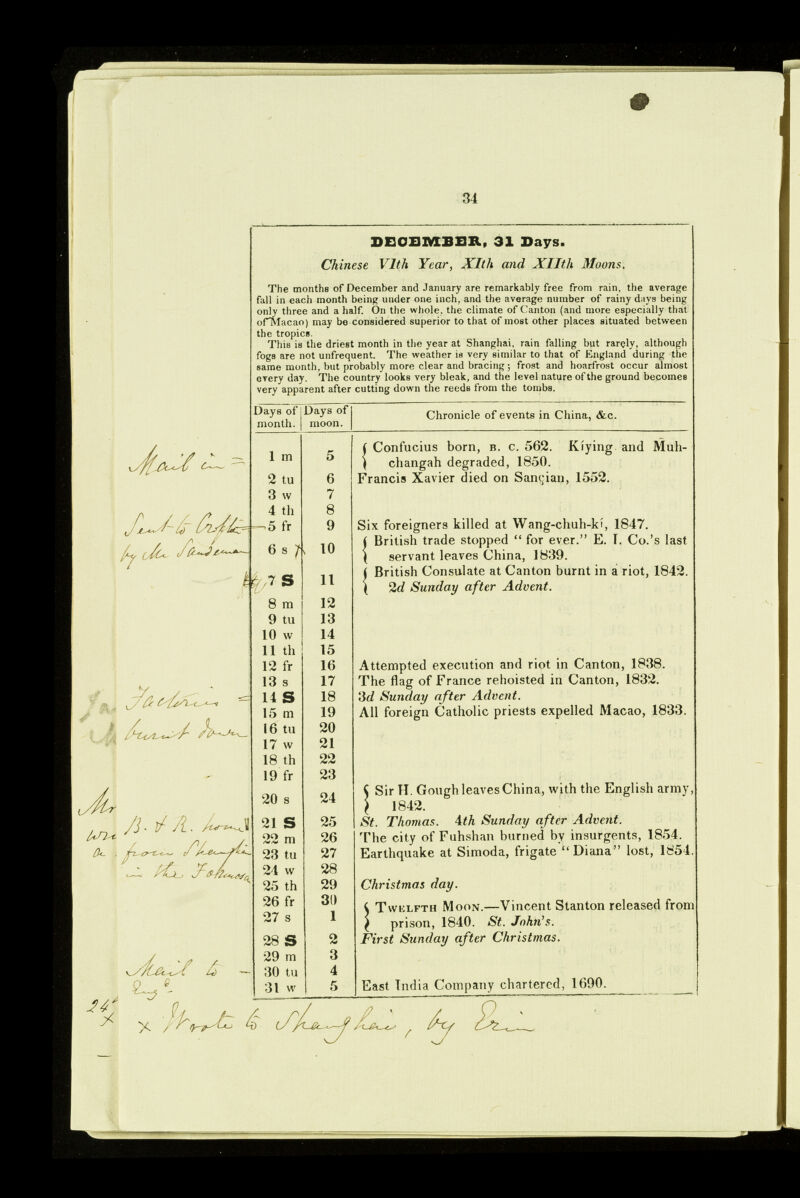 34
DECEMBER, 31 Days.
Chinese VIth Year, XIth and XIIth Moons.
The months of December and January are remarkably free from rain, the average
fall in each month being under one inch, and the average number of rainy days being
only three and a half. On the whole, the climate of Canton (and more especially that
of Macao) may be considered superior to that of most other places situated between
the tropics.
This is the driest month in the year at Shanghai, rain falling but rarely, although
fogs are not unfrequent. The weather is very similar to that of England during the
same month, but probably more clear and bracing; frost and hoarfrost occur almost
every day. The country looks very bleak, and the level nature of the ground becomes
very apparent after cutting down the reeds from the tombs.
Days of month. Days of moon. Chronicle of events in China, &c.
Mail in =
1 m 5 Confucius born, B. C. 562. Kíying and Muh-
changah degraded, 1850.
2 tu 6 Francis Xavier died on Sançian, 1552.
3 w 7
4 th 8
Sent to
5 fr 9 Six foreigners killed at Wang-chuh-kí, 1847.
by
6 s 10 British trade stopped “for ever.” E. I. Co.'s last
servant leaves China, 1839.
7 S 11 British Consulate at Canton burnt in a riot, 1842.
2d Sunday after Advent.
8 m 12
9 tu 13
10 w 14
11 th 15
12 fr 16 Attempted execution and riot in Canton, 1838.
13 s 17 The flag of France rehoisted in Canton, 1832.
Factories =
14 S 18 3d Sunday after Advent.
15 m 19 All foreign Catholic priests expelled Macao, 1833.
burnt down
16 tu 20
17 w 21
18 th 22
19 fr 23
20 s 24 Sir H. Gough leaves China, with the English army,
1842.
Mr
B. & R.
21 S 25 St. Thomas. 4th Sunday after Advent.
22 m 26 The city of Fuhshan burned by insurgents, 1854.
from
23 tu 27 Earthquake at Simoda, frigate “Diana” lost, 1854.
in the Formosa
24 w 28
25 th 29 Christmas day.
26 fr 30
27 s 1 TWELFTH MOON.—Vincent Stanton released from
prison, 1840. St. John's.
28 S 2 First Sunday after Christmas.
29 m 3
Mail to —
30 tu 4
Eng.
31 w 5 East India Company chartered, 1690.
24
x Wrote to Shanghai, by Erin